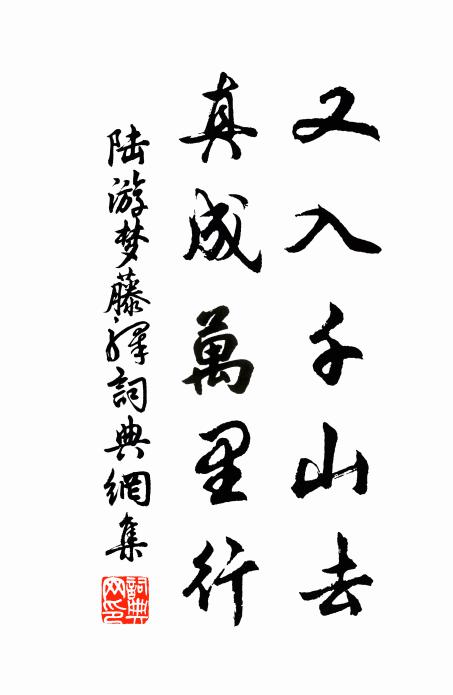 又入千山去
真成萬里行
陆游梦藤驿詞典網集
詞典網印